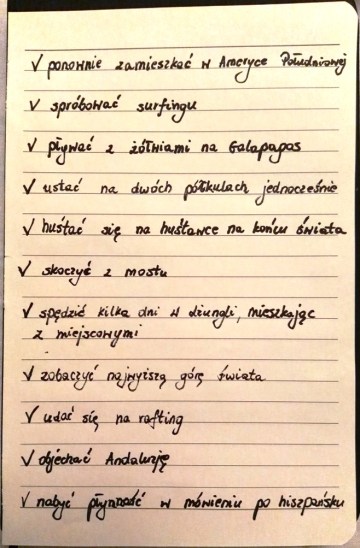 ✓ ponownie zamieszkać w Ameryce Południowej
✓ spróbować surfingu
✓ pływać z żółwiami na Galapagos
✓ ustać na dwóch półkulach jednocześnie
✓ huśtać się na huśtawce na końcu świata
✓ skoczyć z mostu
✓ spędzić kilka dni w dżungli, mieszkając
z miejscowymi
✓ zobaczyć najwyższą górę świata
✓ udać się na rafting
✓ objechać Andaluzję
✓ nabyć płynność w mówieniu po hiszpańsku